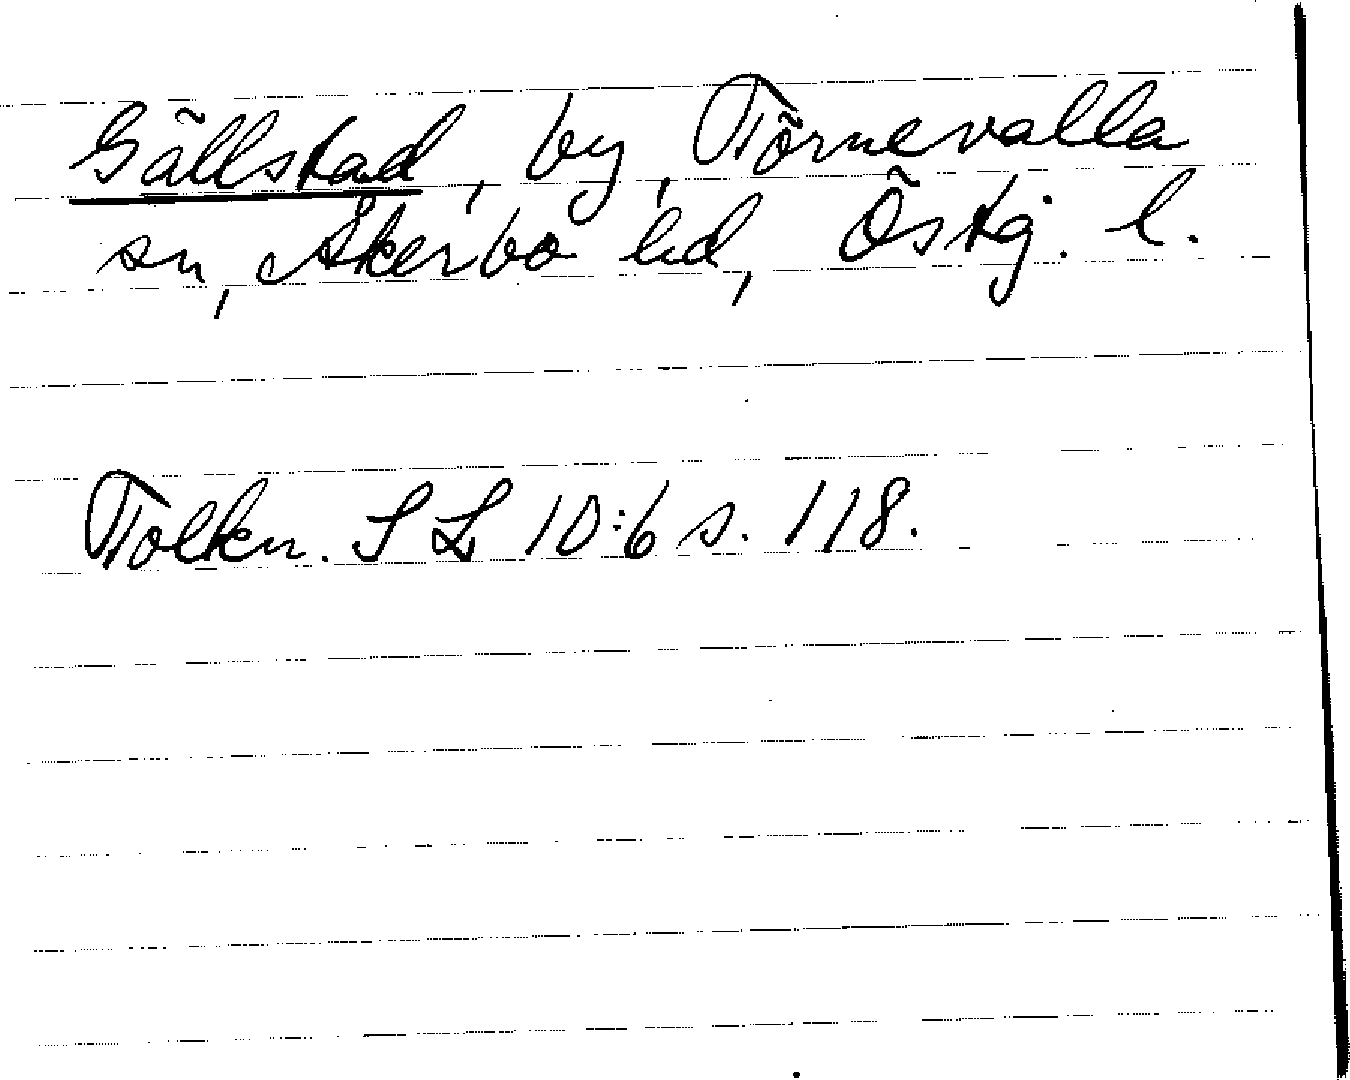 Gällstad, by, Törnevalla
sn, Åkerbo hd, Östg. l.
Tolkn. SL 10:6 s. 118.